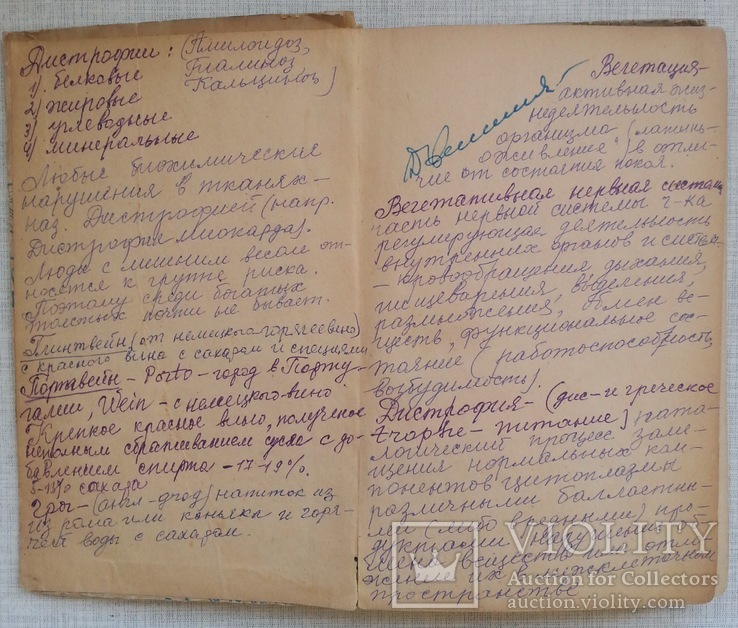 Дистрофии: (Амилоидоз,
1) белковые Гиалиноз,
2) жировые Кальциноз)
3) углеводные
4) минеральные
Любые биохимические
нарушения в тканях-
наз. Дистрофией (напр.
Дистрофия Миокарда).
Люди с лишним весом от-
носятся к группе риска.
Поэтому среди богатых
толстых почти не бывает.
Глинтвейн (от немецкого-горячее вино)
с красного вина с сахаром и специями
Портвейн - Porto - город в Порту-
галии, Wein - с немецкого-вино
Крепкое красное вино, полученое
неполным сбраживанием сусла с до-
бавлением спирта -17-19%.
5-13% сахара
Грог- (англ-грог) напиток из
из рома или коньяка и горя-
чей воды с сахаром.
Вегетация-
активная жиз-
неделятельность
организма (латинь-
оживление) в отли-
чие от состаяния покоя.
Вегетативная нервная система
часть нервной системы ч-ка
регулирующая деятельность
внутренних органов и систем
- кровообращения, дыхания,
пищеварения, выделения,
размножения, Обмен ве-
ществ, функциональное сос-
тояние (работоспособность,
возбудимость).
Дистрофия- (дис- и греческое
питание) пата-
логический процесс заме-
щения нормальных ком-
понентов цитоплазмы
различными балластны-
ми (либо вредными) про-
дуктами нарушеного
обмена веществ или отло-
жение их в межклеточном
пространстве
VIOLITY
Auction for Collectors
auction.violity.com